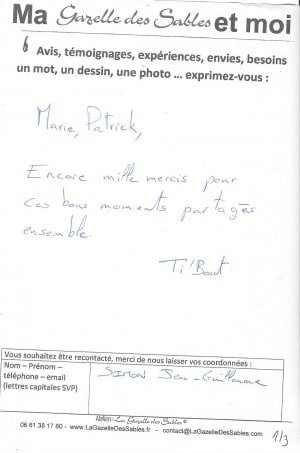 Ma Gazelle des Sables et moi
Avis, témoignages, expériences, envies, besoins
un mot, un dessin, une photo ... exprimez-vous :
Marie, Patrick,
Encore mille mercis pour
ces bons moments partagés
ensemble.
Ti'Bout
Vous souhaitez être recontacté, merci de nous laisser vos coordonnées :
Nom – Prénom –
téléphone – email
(lettres capitales SVP)
SIMON Jean-Guillaume
Ateliers La Gazelle des Sables®
06 61 38 17 80 - www.LaGazelleDesSables.fr - contact@LaGazelleDesSables.com
1/3